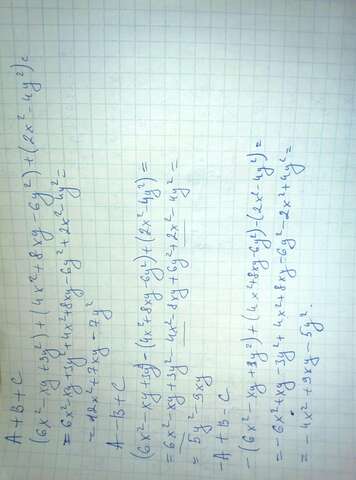 A + B + C
(6x²-xy+3y²)+(4x²+8xy-6y²)+(2x²-4y²)=
=6x²-xy+3y²+4x²+8xy-6y²+2x²-4y²=
=12x²+7xy-7y²
A-B+C
(6x²-xy+3y²)-(4x²+8xy-6y²)+(2x²-4y²)=
=6x²-xy+3y²-4x²-8xy+6y²+2x²-4y²=
=5y²-9xy
-A+B-C
-(6x²-xy+3y²)+(4x²+8xy-6y²)-(2x²-4y²)=
=-6x²+xy-3y²+4x²+8xy-6y²-2x²+4y²=
=-4x²+9xy-5y².